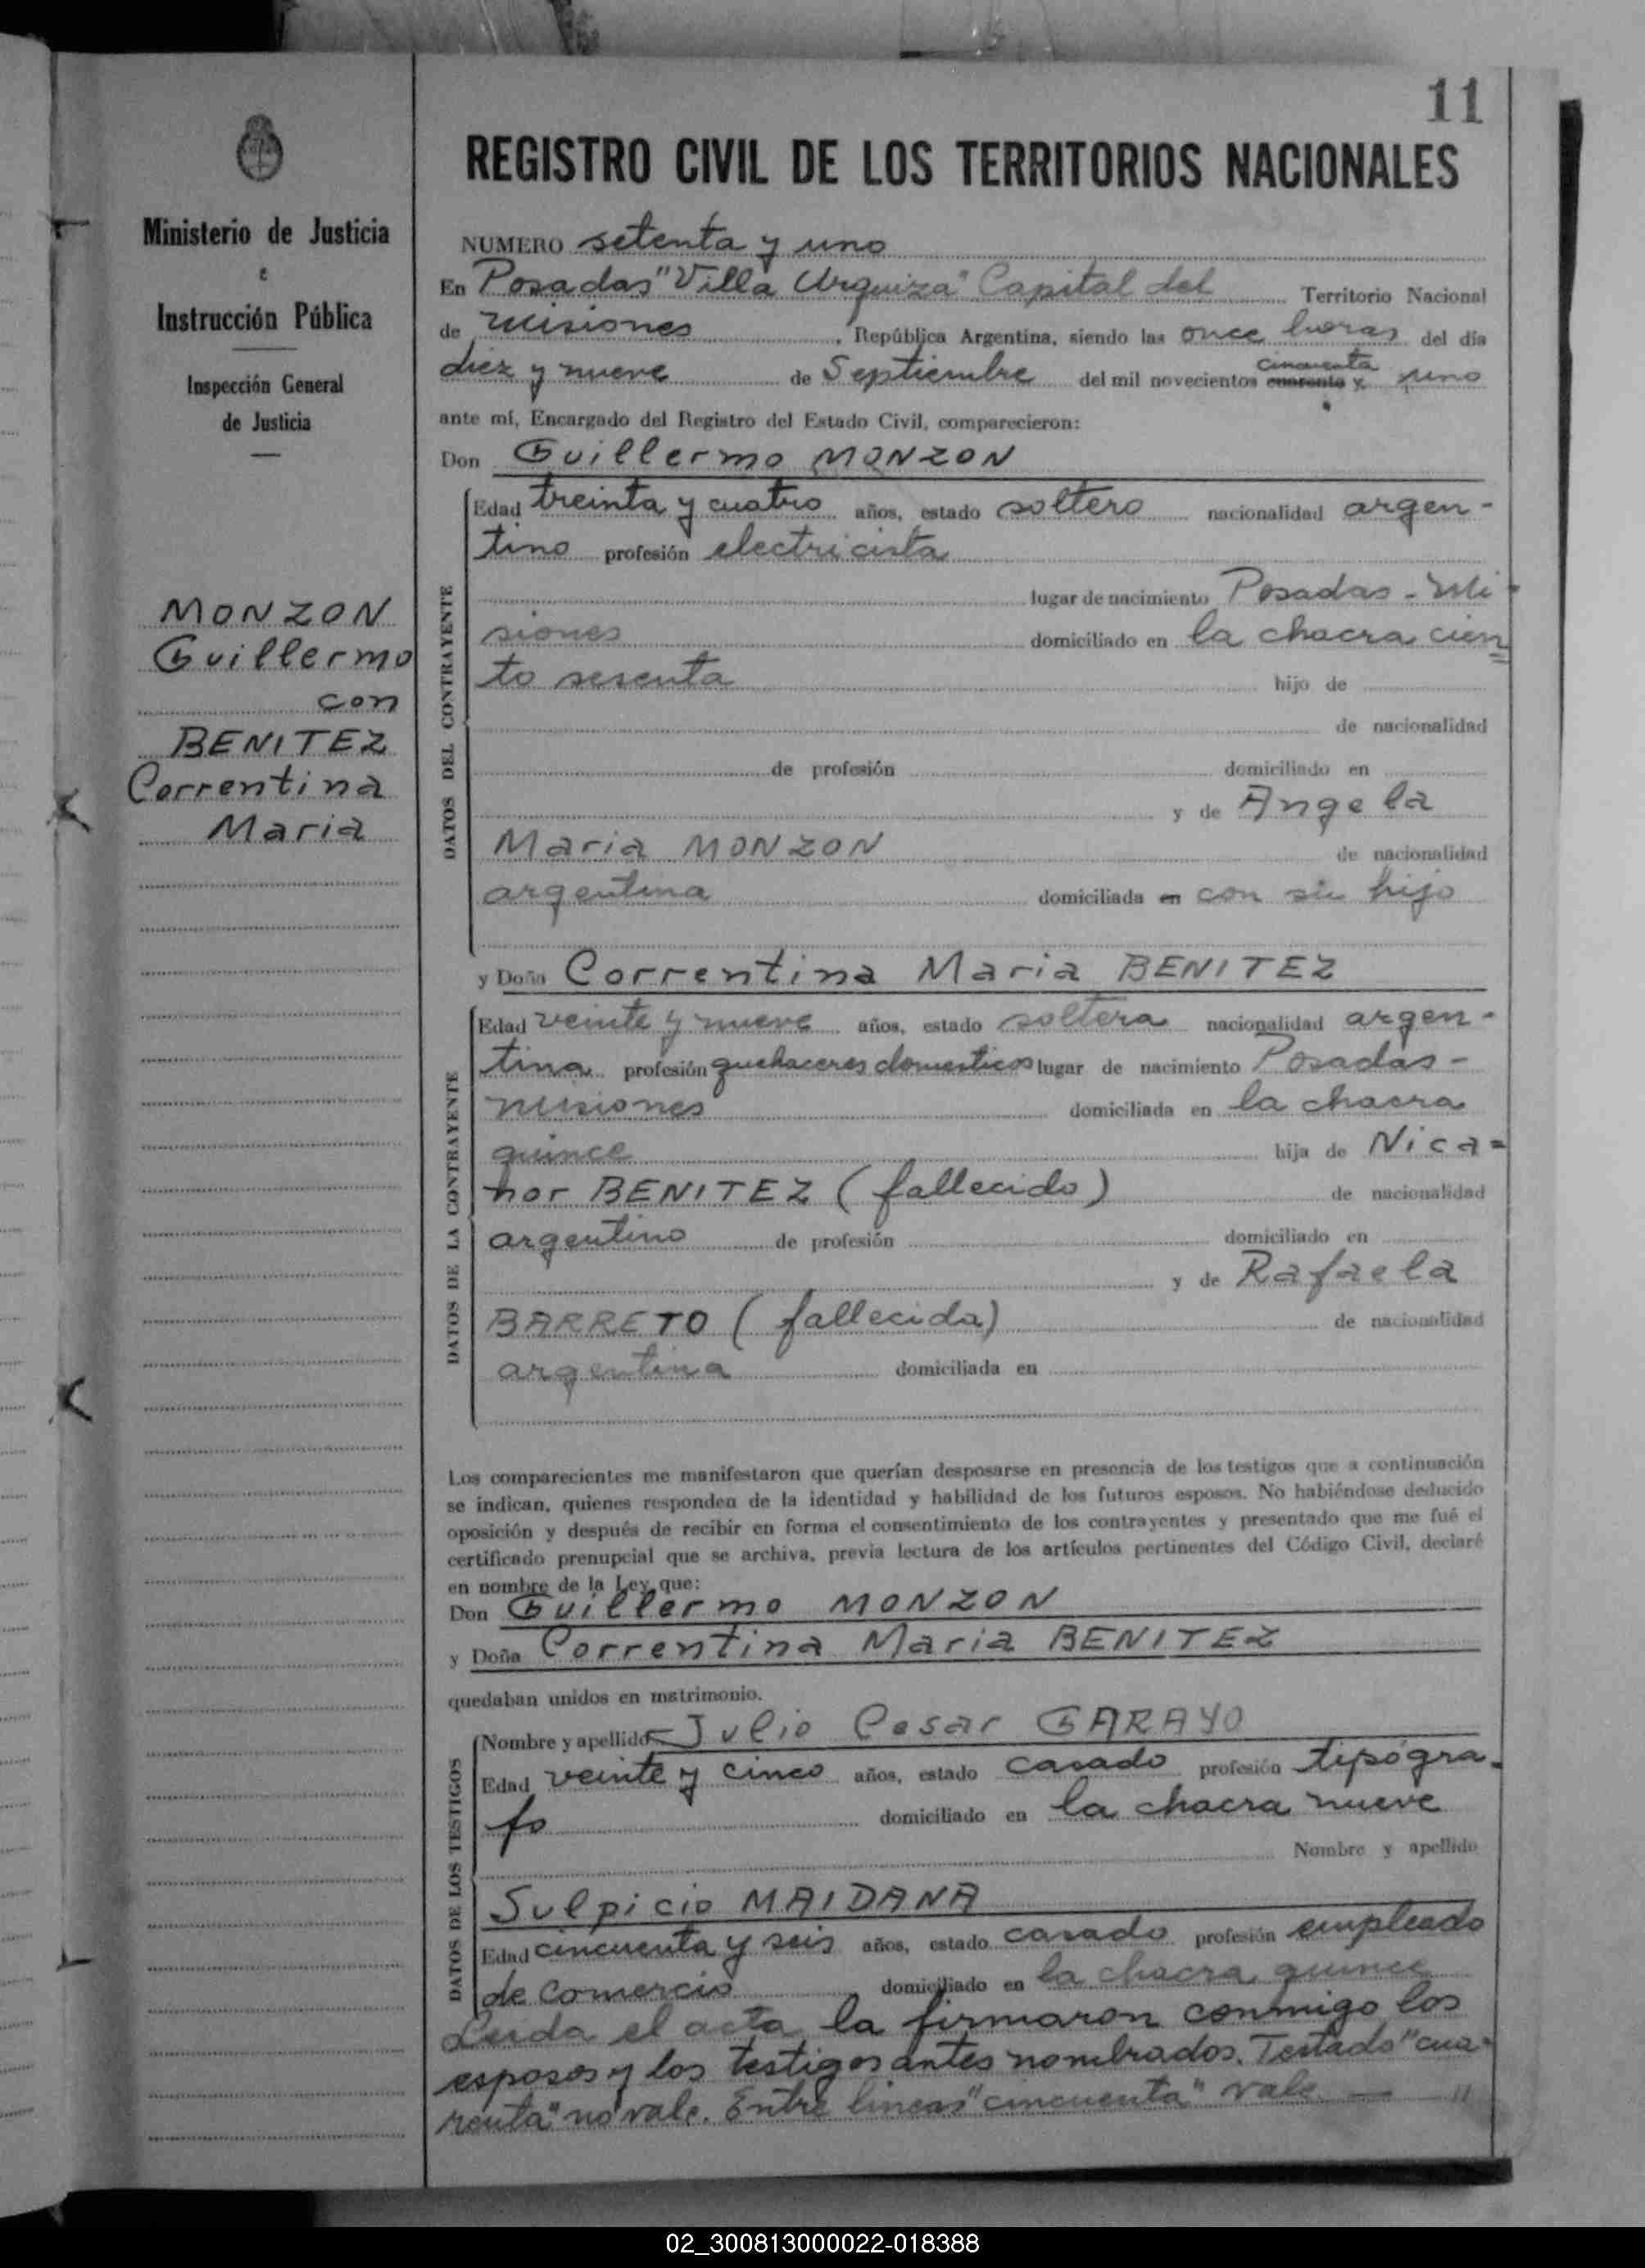 11
REGISTRO CIVIL DE LOS TERRITORIOS NACIONALES
Ministerio de Justicia
e
Instrucción Pública
Inspección General
de Justicia
MONZON
Guillermo
con
BENITEZ
Correntina
Maria
NUMERO setenta y uno
En Posadas "Villa Urquiza" Capital del Territorio Nacional
de Misiones, República Argentina, siendo las once horas del día
cincuenta
diez y nueve de Septiembre del mil novecientos cuarenta y uno
ante mí, Encargado del Registro del Estado Civil, comparecieron:
Don Guillermo MONZON
DATOS DEL CONTRAYENTE
Edad treinta y cuatro años, estado soltero nacionalidad argen-
tino profesión electricista
lugar de nacimiento Posadas - Mi-
siones domiciliado en la chacra cien=
to sesenta hijo de
de nacionalidad
de profesión domiciliado en
y de Angela
Maria MONZON de nacionalidad
argentina domiciliada en con su hijo
y Doña Correntina Maria BENITEZ
DATOS DE LA CONTRAYENTE
Edad veinte y nueve años, estado soltera nacionalidad argen-
tina profesión quehaceres domesticos lugar de nacimiento Posadas -
misiones domiciliada en la chacra
quince hija de Nica=
nor BENITEZ (fallecido) de nacionalidad
argentino de profesión domiciliado en
y de Rafaela
BARRETO (fallecida) de nacionalidad
argentina domiciliada en
Los comparecientes me manifestaron que querían desposarse en presencia de los testigos que a continuación
se indican, quienes responden de la identidad y habilidad de los futuros esposos. No habiéndose deducido
oposición y después de recibir en forma el consentimiento de los contrayentes y presentado que me fué el
certificado prenupcial que se archiva, previa lectura de los artículos pertinentes del Código Civil, declaré
en nombre de la Ley que:
Don Guillermo MONZON
y Doña Correntina Maria BENITEZ
quedaban unidos en matrimonio.
DATOS DE LOS TESTIGOS
Nombre y apellido Julio Cesar GARAYO
Edad veinte y cinco años, estado casado profesión tipógra-
fo domiciliado en la chacra nueve
Nombre y apellido
Sulpicio MAIDANA
Edad cincuenta y seis años, estado casado profesión empleado
de comercio domiciliado en la chacra quince
Leida el acta la firmaron conmigo los
esposos y los testigos antes nombrados. Testado "cua-
renta" no vale. Entre lineas "cincuenta" vale. — "
02_300813000022-018388